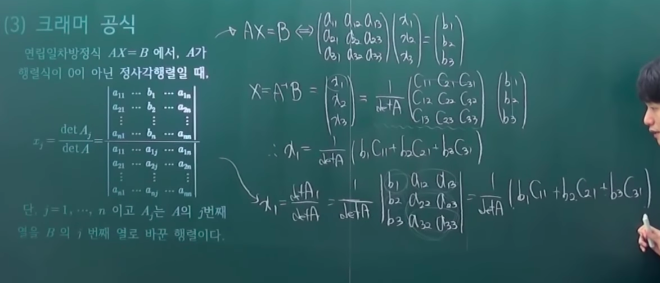 (3) 크래머 공식
연립일차방정식 AX=B 에서, A가
행렬식이 0이 아닌 정사각행렬일 때,
x_j = det A_j / det A = | a_11 ⋯ b_1 ⋯ a_1n ; a_21 ⋯ b_2 ⋯ a_2n ; ⋮ ⋮ ⋮ ; a_n1 ⋯ b_n ⋯ a_nn | / | a_11 ⋯ a_1j ⋯ a_1n ; a_21 ⋯ a_2j ⋯ a_2n ; ⋮ ⋮ ⋮ ; a_n1 ⋯ a_nj ⋯ a_nn |
단, j=1, ⋯, n 이고 A_j는 A의 j번째
열을 B의 j 번째 열로 바꾼 행렬이다.
AX=B ⇔ (a_11 a_12 a_13 ; a_21 a_22 a_23 ; a_31 a_32 a_33)(x_1 ; x_2 ; x_3) = (b_1 ; b_2 ; b_3)
X=A⁻¹B = (x_1 ; x_2 ; x_3) = 1/detA (C_11 C_21 C_31 ; C_12 C_22 C_32 ; C_13 C_23 C_33)(b_1 ; b_2 ; b_3)
∴ x_1 = 1/detA (b_1C_11 + b_2C_21 + b_3C_31)
x_1 = detA_1/detA = 1/detA | b_1 a_12 a_13 ; b_2 a_22 a_23 ; b_3 a_32 a_33 | = 1/detA (b_1C_11 + b_2C_21 + b_3C_31)